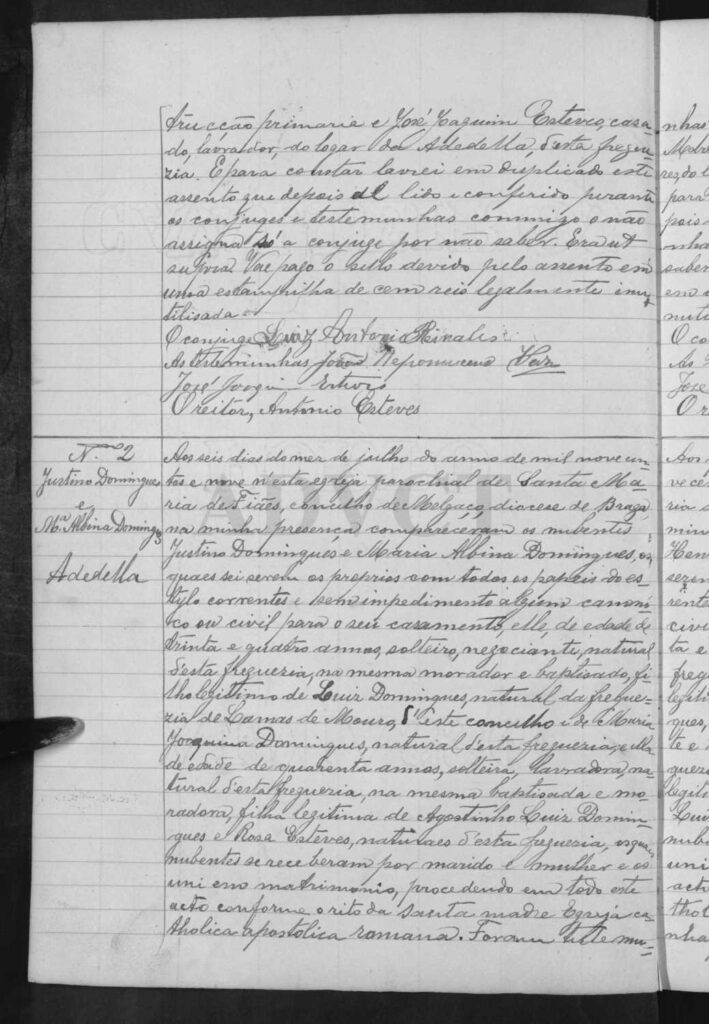 trucção primaria e José Joaquim Esteves, casa-
do, lavrador, do logar da Adedella, d'esta fregue-
zia. E para constar lavrei em duplicado este
assento que depois de lido e conferido perante
os conjuges e testemunhas commigo o não
assigna só a conjuge por não saber. Era ut
supra. Vae pago o sello devido pelo assento em
uma estampilha de cem reis legalmente inu-
tilisada.
O conjuge Luiz Antonio
As testemunhas João Neponuceno Vaz
José Joaqui Esteves
O reitor, Antonio Esteves
N.º 2
Justino Domingues
e
M.ª Albina Doming.s
Adedella
Aos seis dias do mez de julho do anno de mil novecen-
tos e nove n'esta egreja parochial de Santa Ma-
ria de Fiães, concelho de Melgaço, diocese de Braga,
na minha presença compareceram os nubentes
Justino Domingues e Maria Albina Domingues, os
quaes sei serem os proprios com todos os papeis do es-
tylo correntes e sem impedimento algum canoni-
co ou civil para o seu casamento, elle, de edade de
trinta e quatro annos, solteiro, negociante, natural
d'esta freguezia, na mesma morador e baptisado, fi-
lho legitimo de Luiz Domingues, natural da fregue-
zia de Lamas de Mouro, d'este concelho e de Maria
Joaquina Domingues, natural d'esta freguezia, e ella
de edade de quarenta annos, solteira, lavradora, na-
tural d'esta freguezia, na mesma baptisada e mo-
radora, filha legitima de Agostinho Luiz Domin-
gues e Rosa Esteves, naturaes d'esta freguezia, os quaes
nubentes se receberam por marido e mulher e os
uni em matrimonio, procedendo em todo este
acto conforme o rito da santa madre Egreja ca-
tholica apostolica romana. Foram testemu-